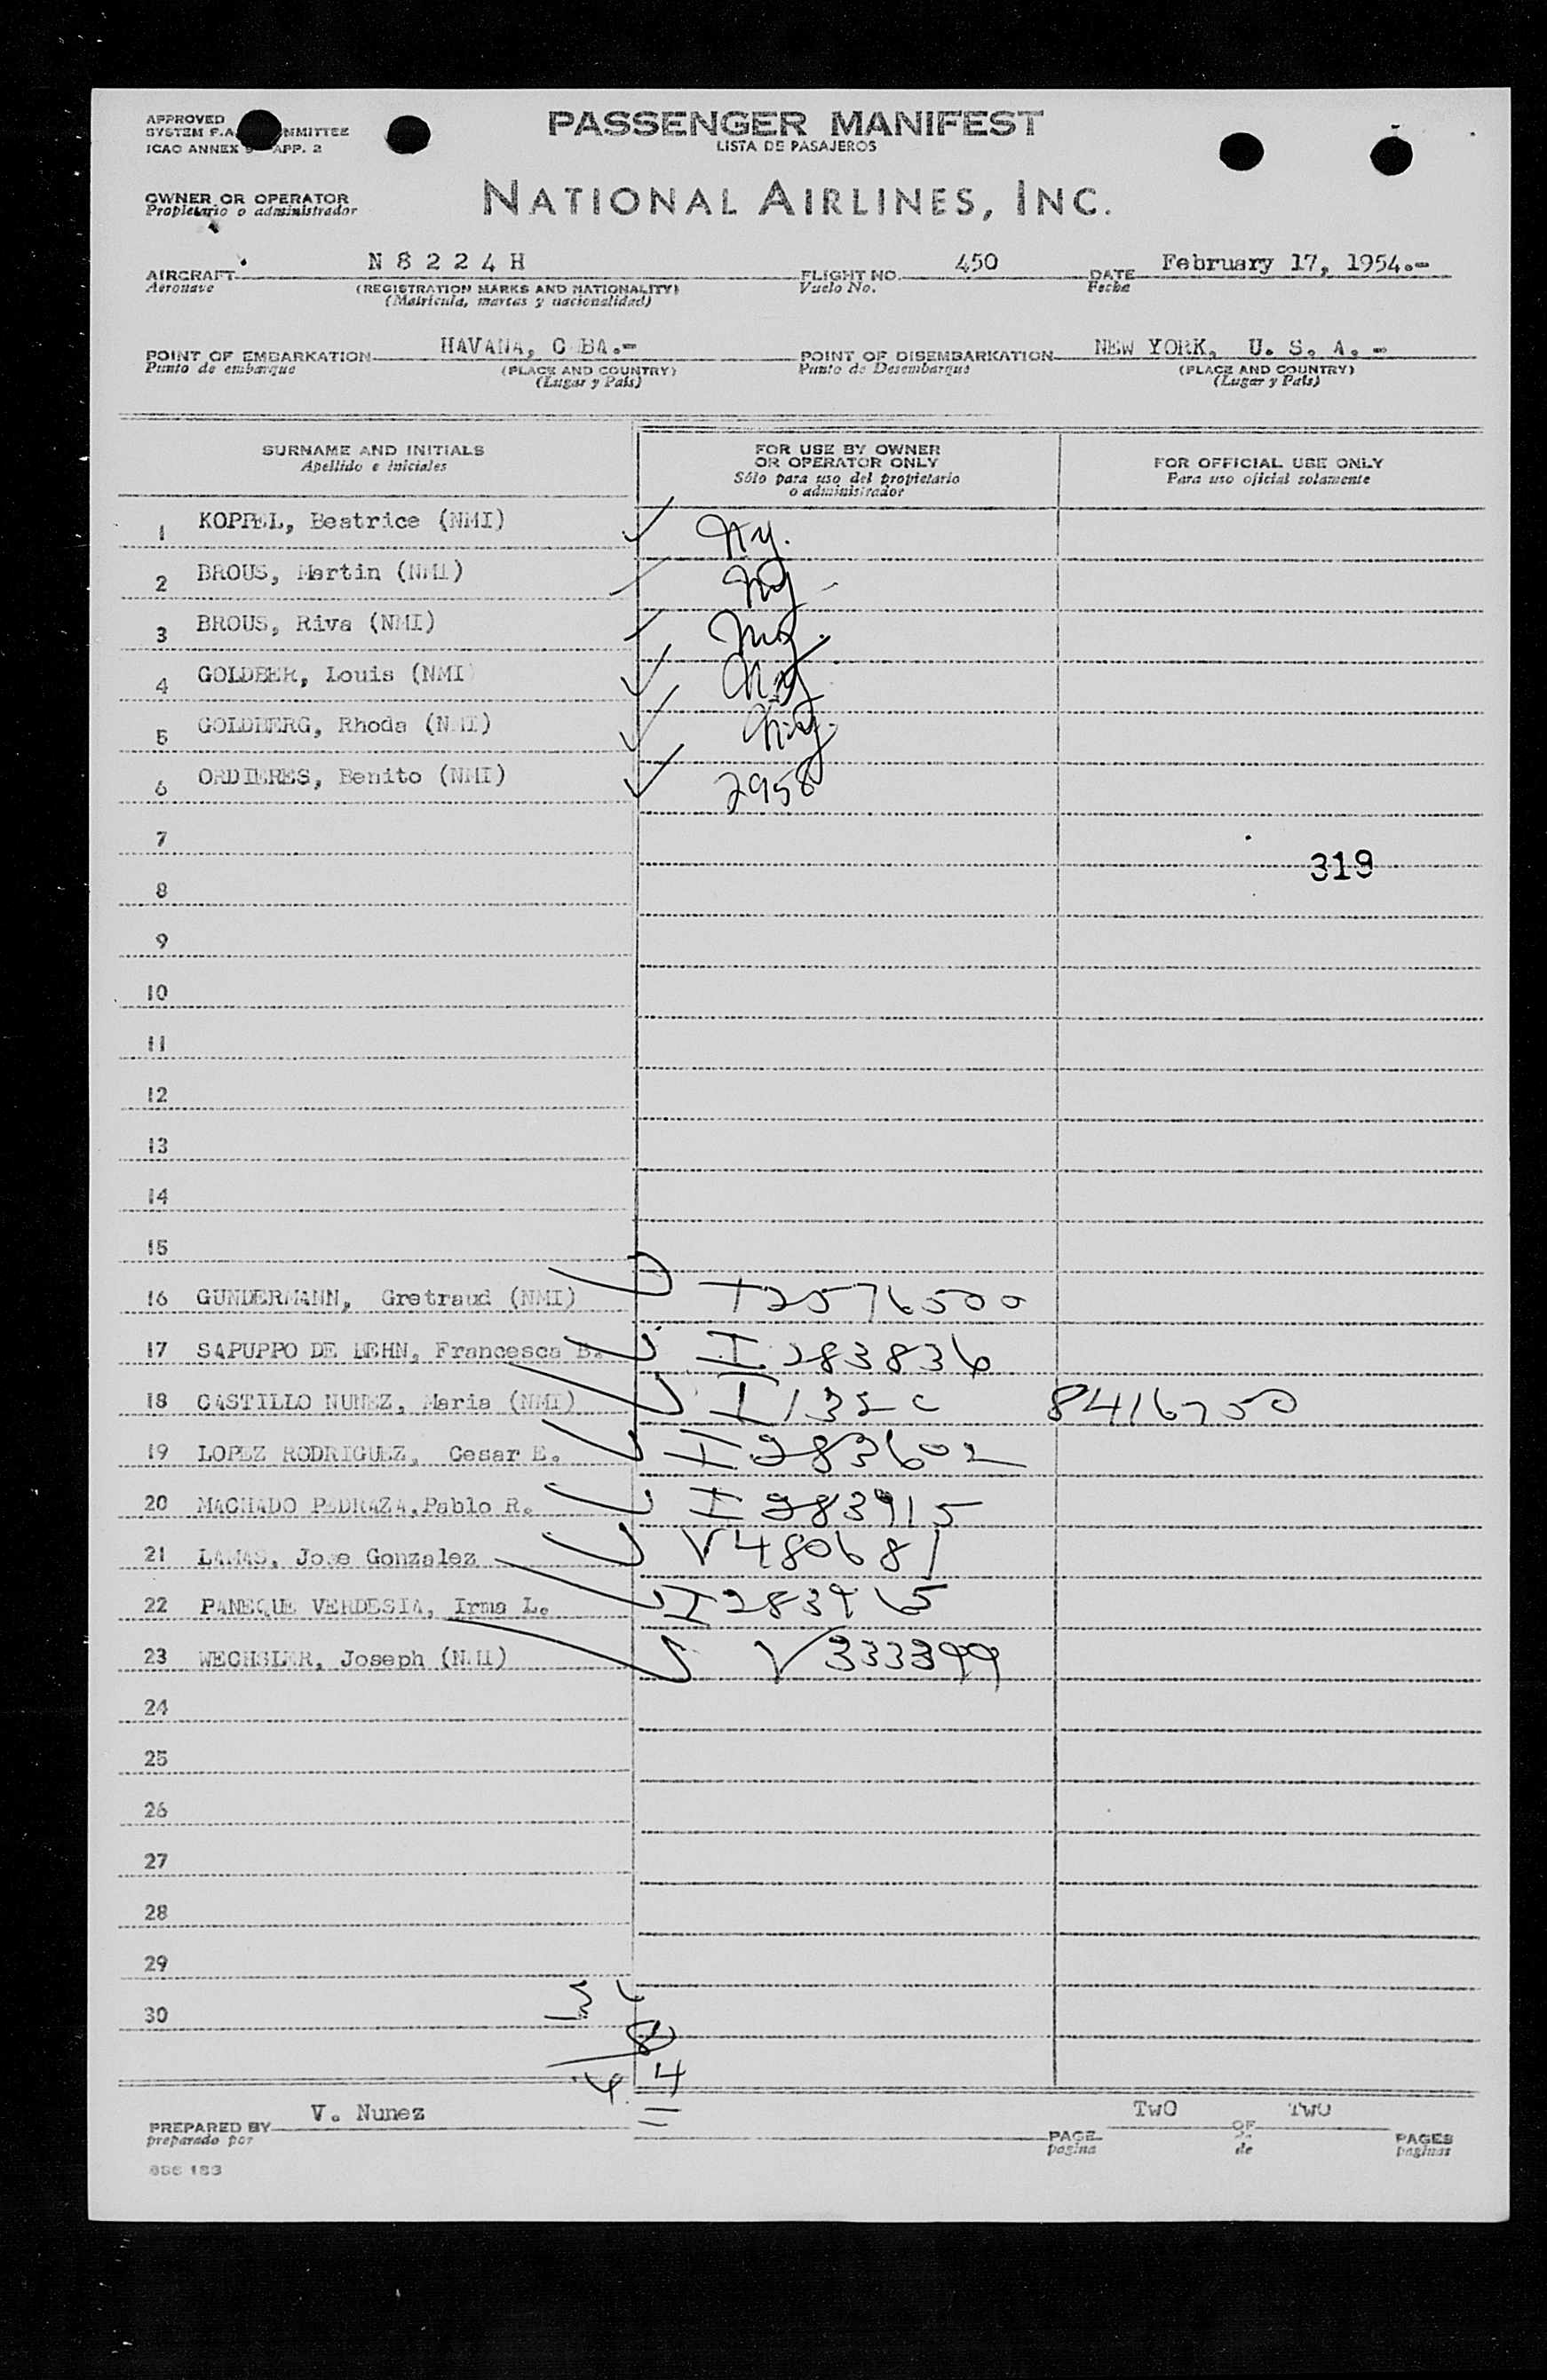 APPROVED
SYSTEM F.A. MMITTEE
ICAO ANNEX 9 APP. 2
PASSENGER MANIFEST
LISTA DE PASAJEROS
OWNER OR OPERATOR
Propietario o administrador
NATIONAL AIRLINES, INC.
AIRCRAFT N 8 2 2 4 H FLIGHT NO. 450 DATE February 17, 1954.-
Aeronave (REGISTRATION MARKS AND NATIONALITY) Vuelo No. Fecha
(Matrícula, marcas y nacionalidad)
POINT OF EMBARKATION HAVANA, C BA.- POINT OF DISEMBARKATION NEW YORK, U. S. A. -
Punto de embarque (PLACE AND COUNTRY) Punto de Desembarque (PLACE AND COUNTRY)
(Lugar y País) (Lugar y País)
SURNAME AND INITIALS
Apellido e iniciales
FOR USE BY OWNER
OR OPERATOR ONLY
Sólo para uso del propietario
o administrador
FOR OFFICIAL USE ONLY
Para uso oficial solamente
1 KOPPEL, Beatrice (NMI) Ny.
2 BROUS, Martin (NMI) Ny -
3 BROUS, Riva (NMI)
4 GOLDBER, Louis (NMI Ny
5 GOLDBERG, Rhoda (NMI) N.y.
6 ORDIERES, Benito (NMI) 2958
7
319
8
9
10
11
12
13
14
15
16 GUNDERMANN, Gretraud (NMI) I2576500
17 SAPUPPO DE LEHN, Francesca B. I 283836
18 CASTILLO NUNEZ, Maria (NMI) I 135 c 8416750
19 LOPEZ RODRIGUEZ, Cesar E. I 283602
20 MACHADO PEDRAZA, Pablo R. I 283915
21 LAMAS, Jose Gonzalez V480681
22 PANEQUE VERDESIA, Irma L. I283965
23 WECHSLER, Joseph (NMI) V333399
24
25
26
27
28
29
30
8
4
PREPARED BY V. Nunez PAGE TWO OF TWO PAGES
preparado por página de páginas